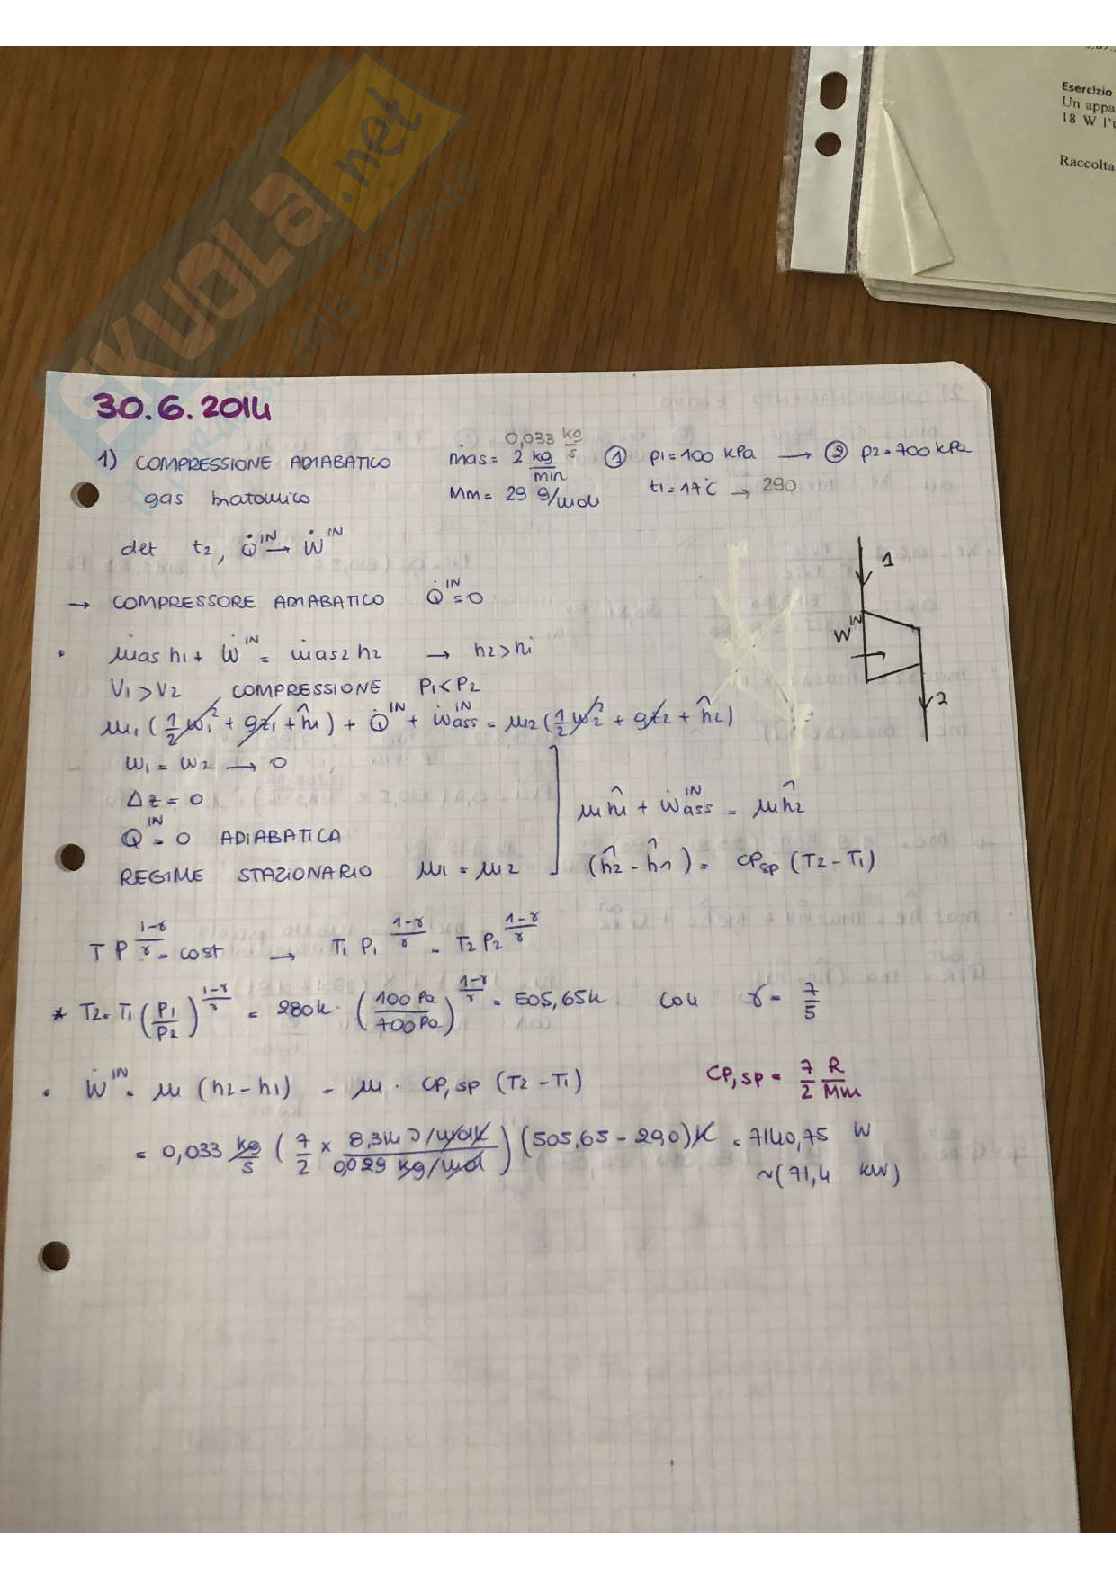 Esercizio
Un appa
18 W l'u
Raccolta
SKUOLA.net
30.6.2014
1) COMPRESSIONE ADIABATICO ṁas = 2 kg/min 0,033 kg/s ① p1 = 100 kPa → ② p2 = 700 kPa
gas biatomico Mm = 29 g/mol t1 = 17°C → 290
det t2, Q̇^IN → Ẇ^IN
→ COMPRESSORE ADIABATICO Q̇^IN = 0
1
W^IN
2
• ṁas h1 + Ẇ^IN = ṁas2 h2 → h2 > h1
V1 > V2 COMPRESSIONE P1 < P2
ṁ1 (1/2 w1² + gz1 + ĥ1) + Q̇^IN + Ẇass^IN = ṁ2 (1/2 w2² + gz2 + ĥ2)
w1 = w2 → 0
Δz = 0
Q^IN = 0 ADIABATICA
REGIME STAZIONARIO ṁ1 = ṁ2
ṁĥ1 + Ẇass^IN = ṁĥ2
(ĥ2 - ĥ1) = CPsp (T2 - T1)
T P^(1-γ/γ) = cost → T1 P1^(1-γ/γ) = T2 P2^(1-γ/γ)
* T2 = T1 (P1/P2)^(1-γ/γ) = 280K · (100 Pa/700 Pa)^(1-γ/γ) = 505,65K con γ = 7/5
• Ẇ^IN = ṁ (h2 - h1) = ṁ · CP,sp (T2 - T1) CP,sp = 7/2 R/Mm
= 0,033 kg/s (7/2 × 8,314 J/molK / 0,029 kg/mol) (505,65 - 290)K = 7140,75 W
~(71,4 kW)